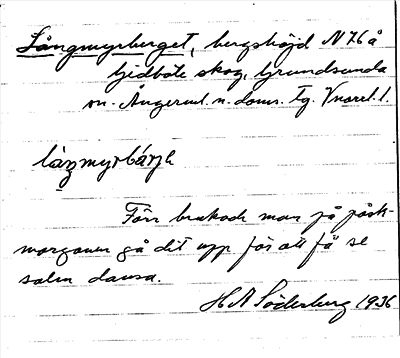 Långmyrberget, bergshöjd N 76 å
Gidböle skog, Grundsunda
sn. Ångerml. n. doms. tg. Vnorrl. l.
làŋmyrbárjh
Förr brukade man på påsk-
morgonen gå dit upp för att få se
solen dansa.
H A Söderberg 1936